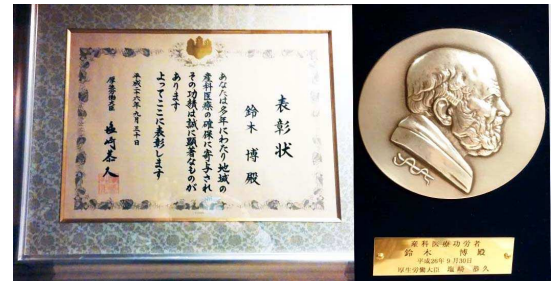 表彰状
鈴木 博 殿
あなたは多年にわたり地域の
産科医療の確保に寄与され
その功績は誠に顕著なものが
あります
よってここに表彰します
平成二十六年九月三十日
厚生労働大臣 塩崎恭久
産科医療功労者
鈴木 博殿
平成26年9月30日
厚生労働大臣 塩崎 恭久